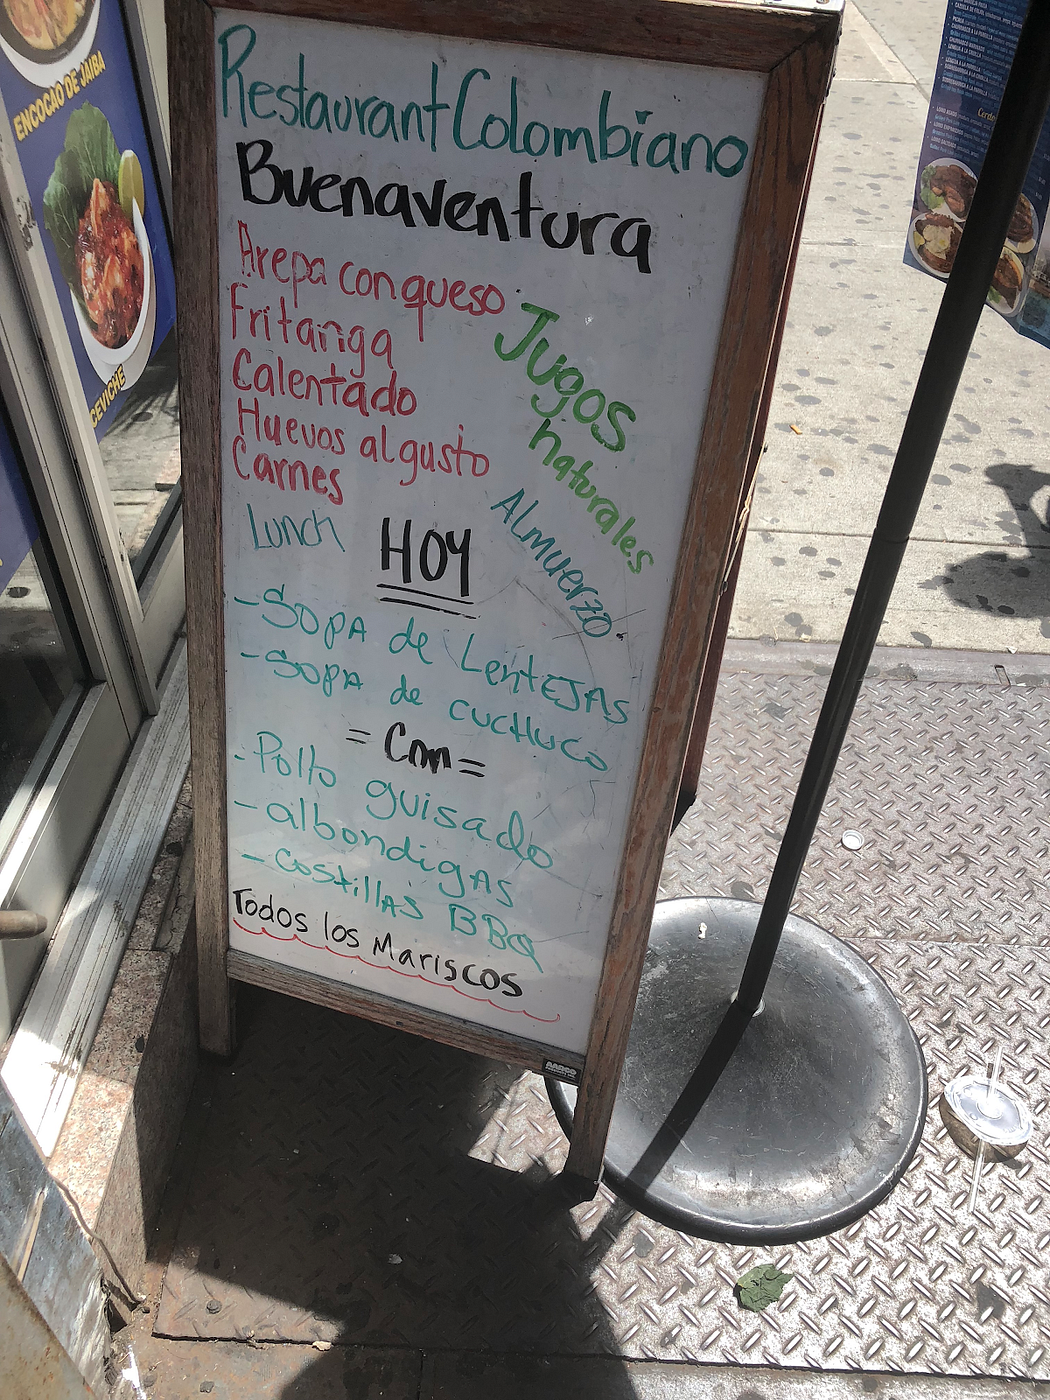 Restaurant Colombiano
Buenaventura
Arepa con queso
Fritanga
Calentado
Huevos al gusto
Carnes
Jugos
naturales
Lunch
HOY
Almuerzo
- SOPA de LentEJAS
- SOPA de cucHuco
= Con =
- Pollo guisado
- albondigAS
- costillAS BBQ
Todos los Mariscos
ENCOCAO DE JAIBA
CEVICHE